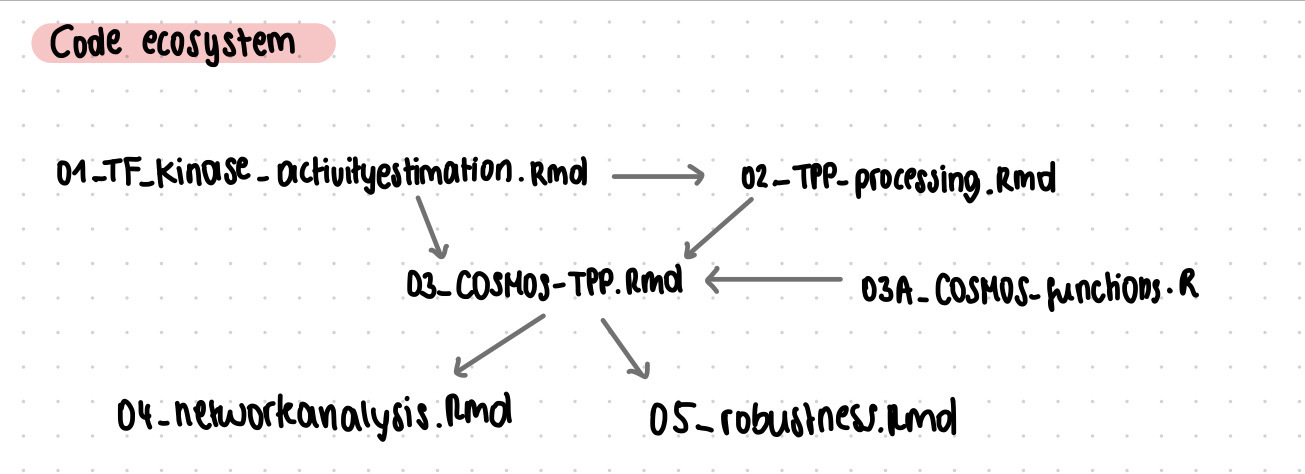 Code ecosystem
01_TF_Kinase_activityestimation.Rmd
02_TPP_processing.Rmd
03_COSMOS-TPP.Rmd
03A_COSMOS-functions.R
04_networkanalysis.Rmd
05_robustness.Rmd